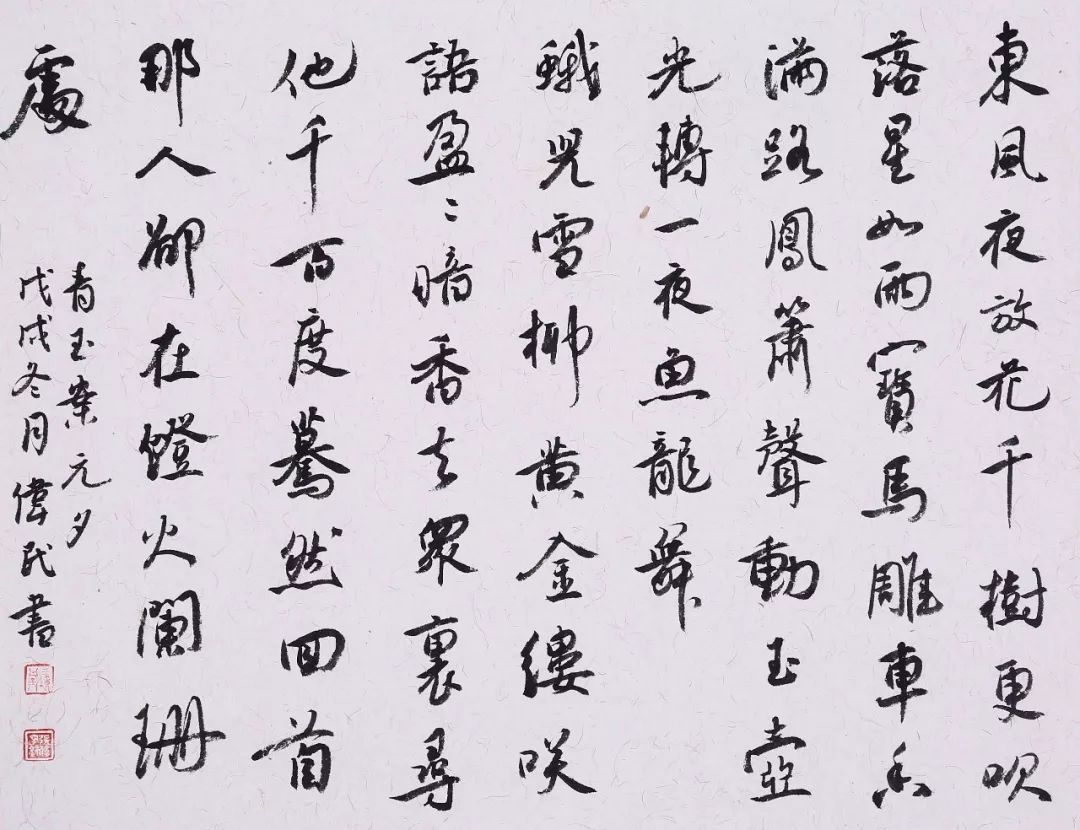 東風夜放花千樹更吹
落星如雨寶馬雕車香
滿路鳳簫聲動玉壺
光轉一夜魚龍舞
蛾兒雪柳黃金縷咲
語盈〻暗香去眾裏尋
他千百度驀然回首
那人卻在燈火闌珊
處
青玉案元夕
戊戌冬月偉民書